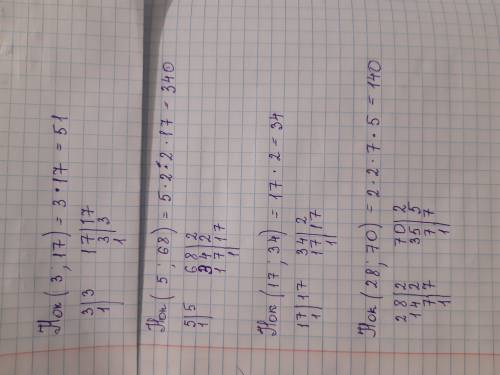 Нок (3; 17) = 3 · 17 = 51
3|3 17|17
1| 3|3
1
Нок (5; 68) = 5 · 2 · 2 · 17 = 340
5|5 68|2
1| 34|2
17|17
1|
Нок (17; 34) = 17 · 2 = 34
17|17 34|2
1| 17|17
1|
Нок (28; 70) = 2 · 2 · 7 · 5 = 140
28|2 70|2
14|2 35|5
7|7 7|7
1| 1|